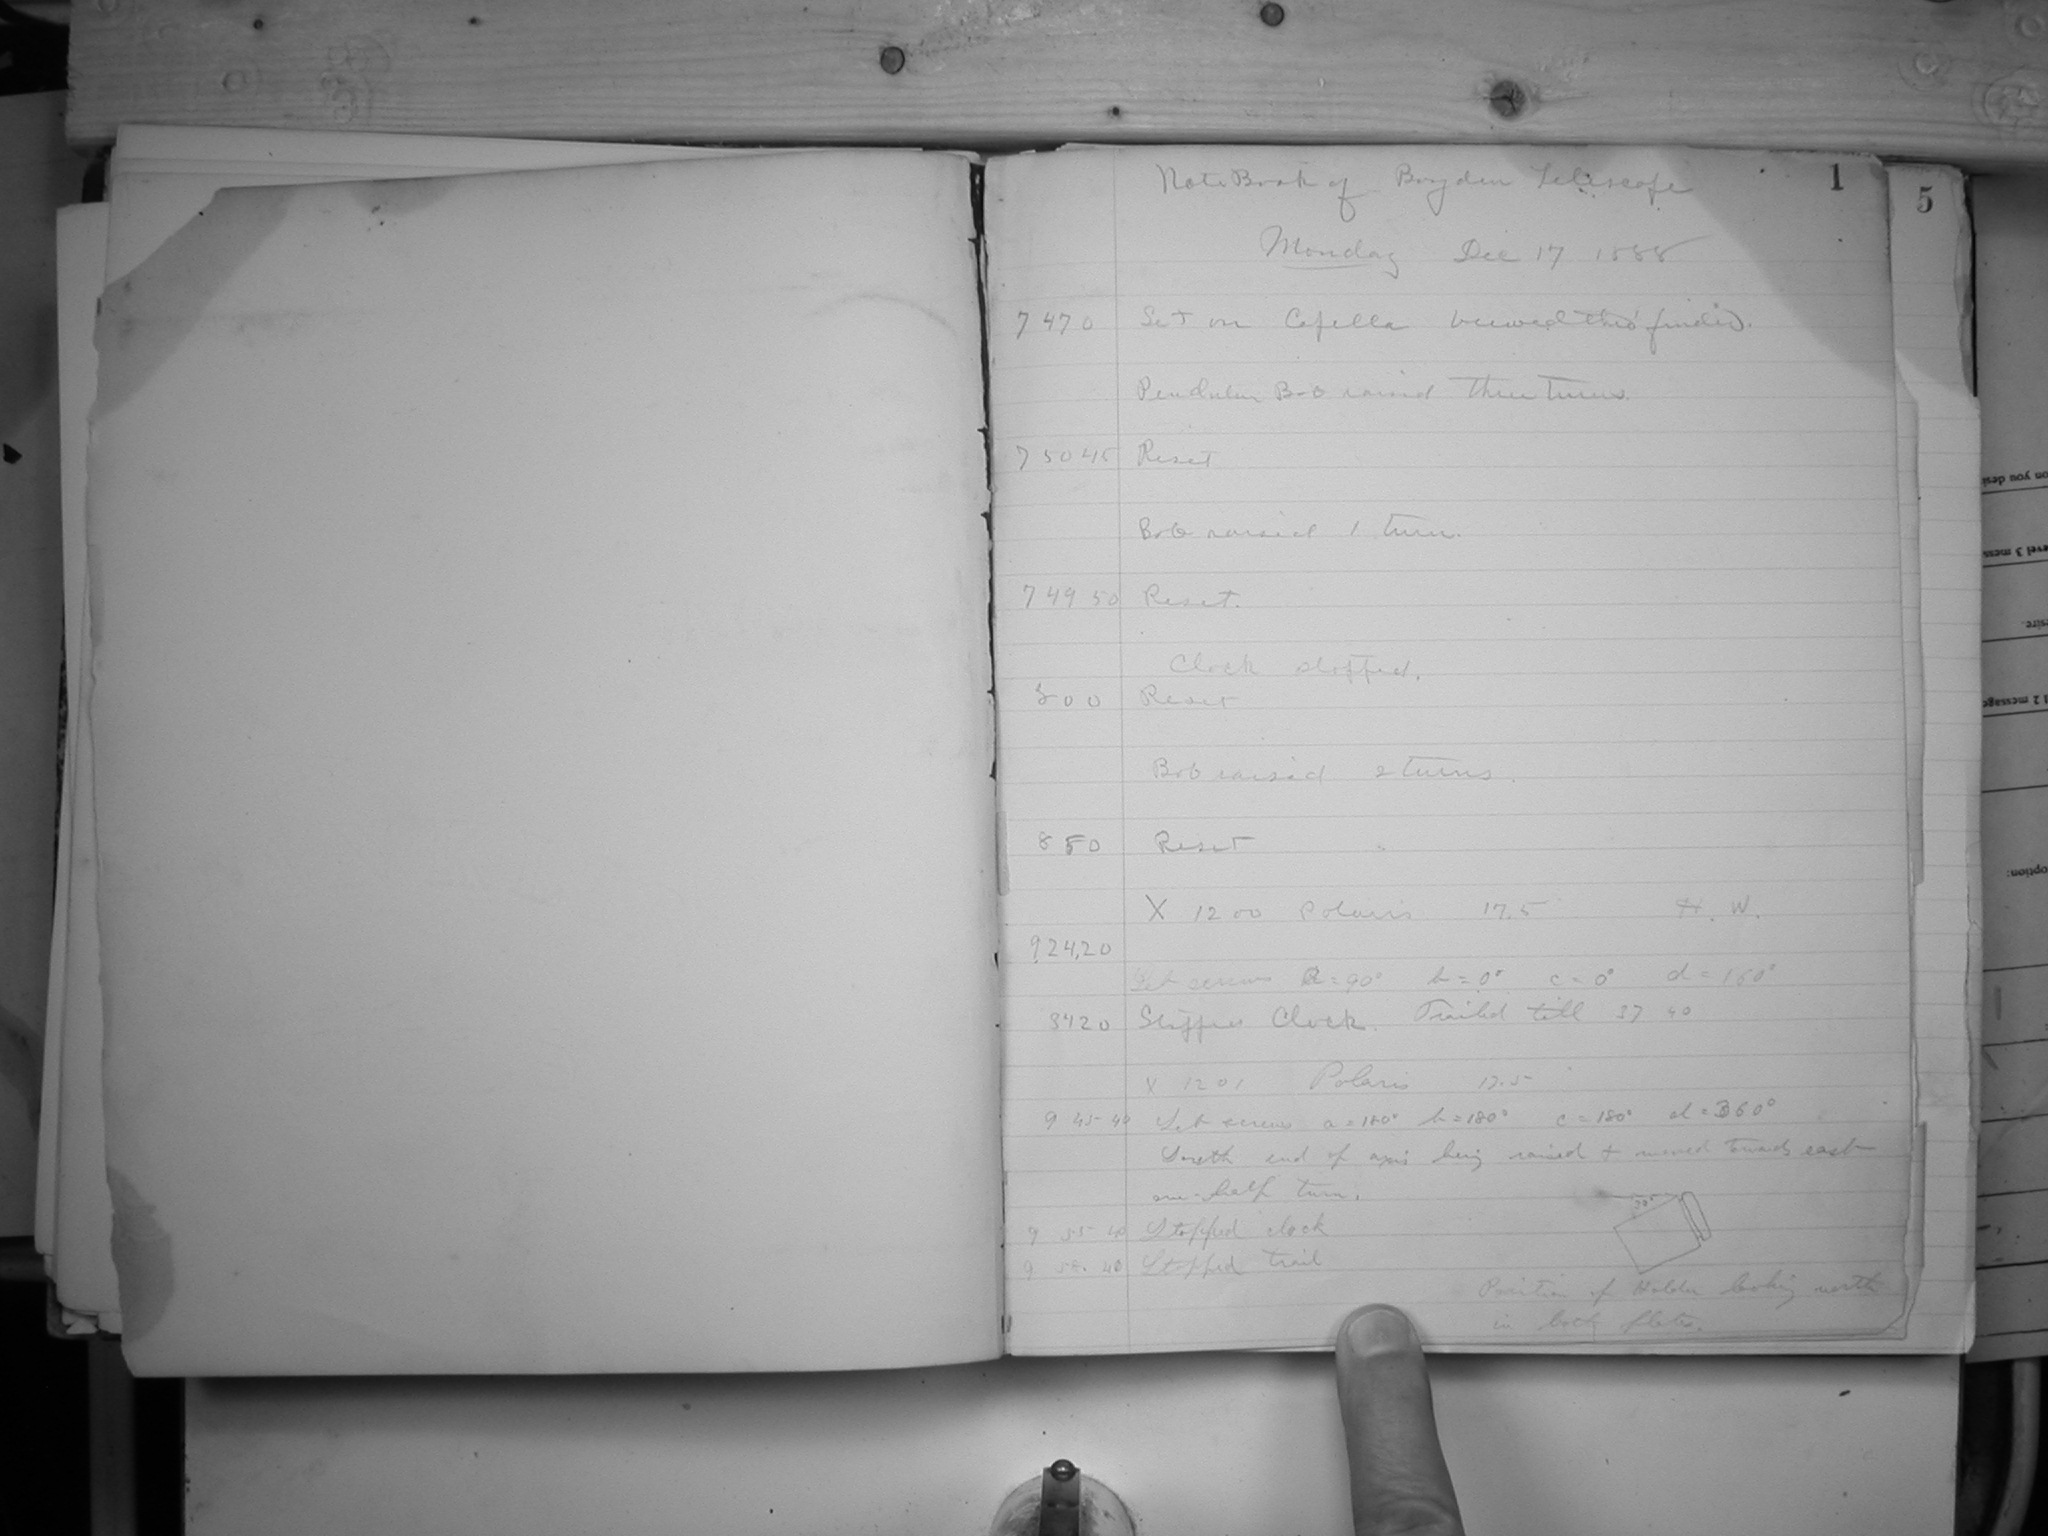 Note Book of Boyden Telescope 1
5
Monday Dec 17 1888
7 47 0 Set on Capella viewed thro' finder.
Pendulum Bob raised three turns.
7 50 45 Reset
Bob raised 1 turn.
7 49 50 Reset.
Clock stopped.
8 0 0 Reset
Bob raised 2 turns.
8 5 0 Reset
X 1200 Polaris 17.5 H. W.
9 24,20
Set screws a=90° b=0° c=0° d=160°
3420 Stopped Clock. Trailed till 37 40
X 1201 Polaris 17.5
9 45 40 Set screws a=180° b=180° c=180° d=360°
South end of axis being raised + moved towards east
one-half turn.
9 55 40 Stopped clock
9 58. 40 Stopped trail
Position of Holder looking north
in both plates.
on you desi
evel 3 mess
esire.
l 2 message
option: